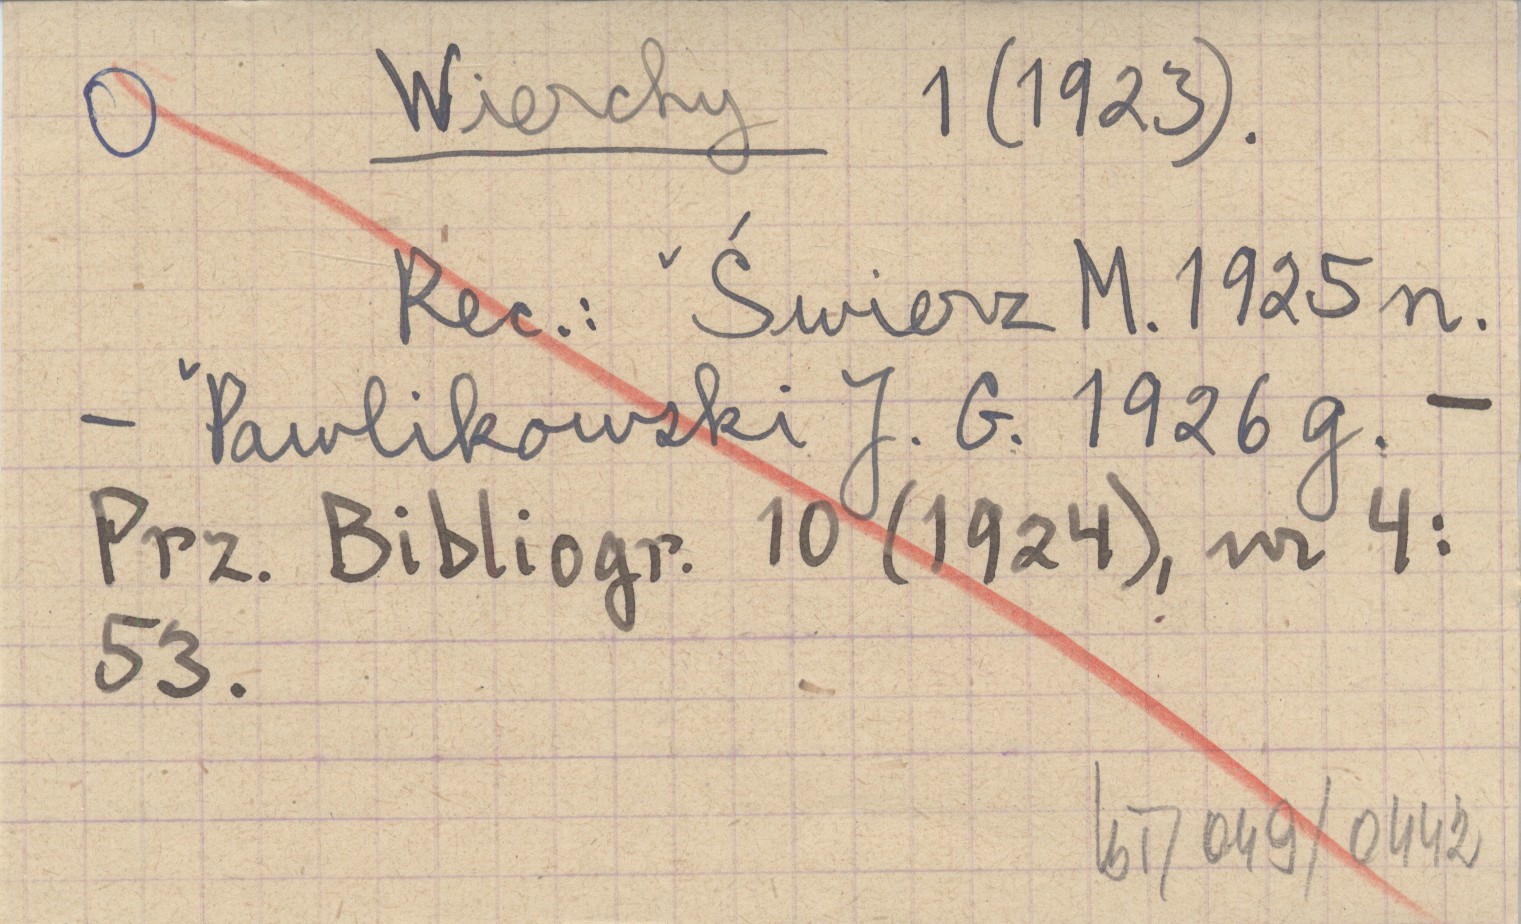 O Wierchy 1 (1923).
Rec.: ˇŚwierz M. 1925 n.
– ˇPawlikowski J. G. 1926 g. –
Prz. Bibliogr. 10 (1924), nr 4:
53.
049/0442